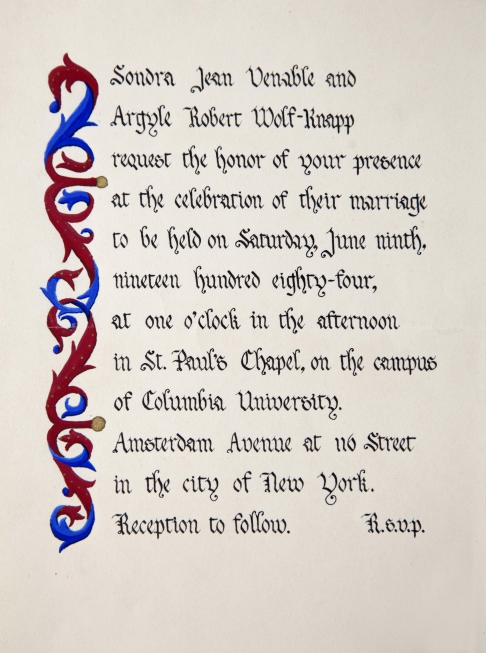 Sondra Jean Venable and
Argyle Robert Wolf-Knapp
request the honor of your presence
at the celebration of their marriage
to be held on Saturday, June ninth,
nineteen hundred eighty-four,
at one o'clock in the afternoon
in St. Paul's Chapel, on the campus
of Columbia University.
Amsterdam Avenue at 116 Street
in the city of New York.
Reception to follow. R.s.v.p.